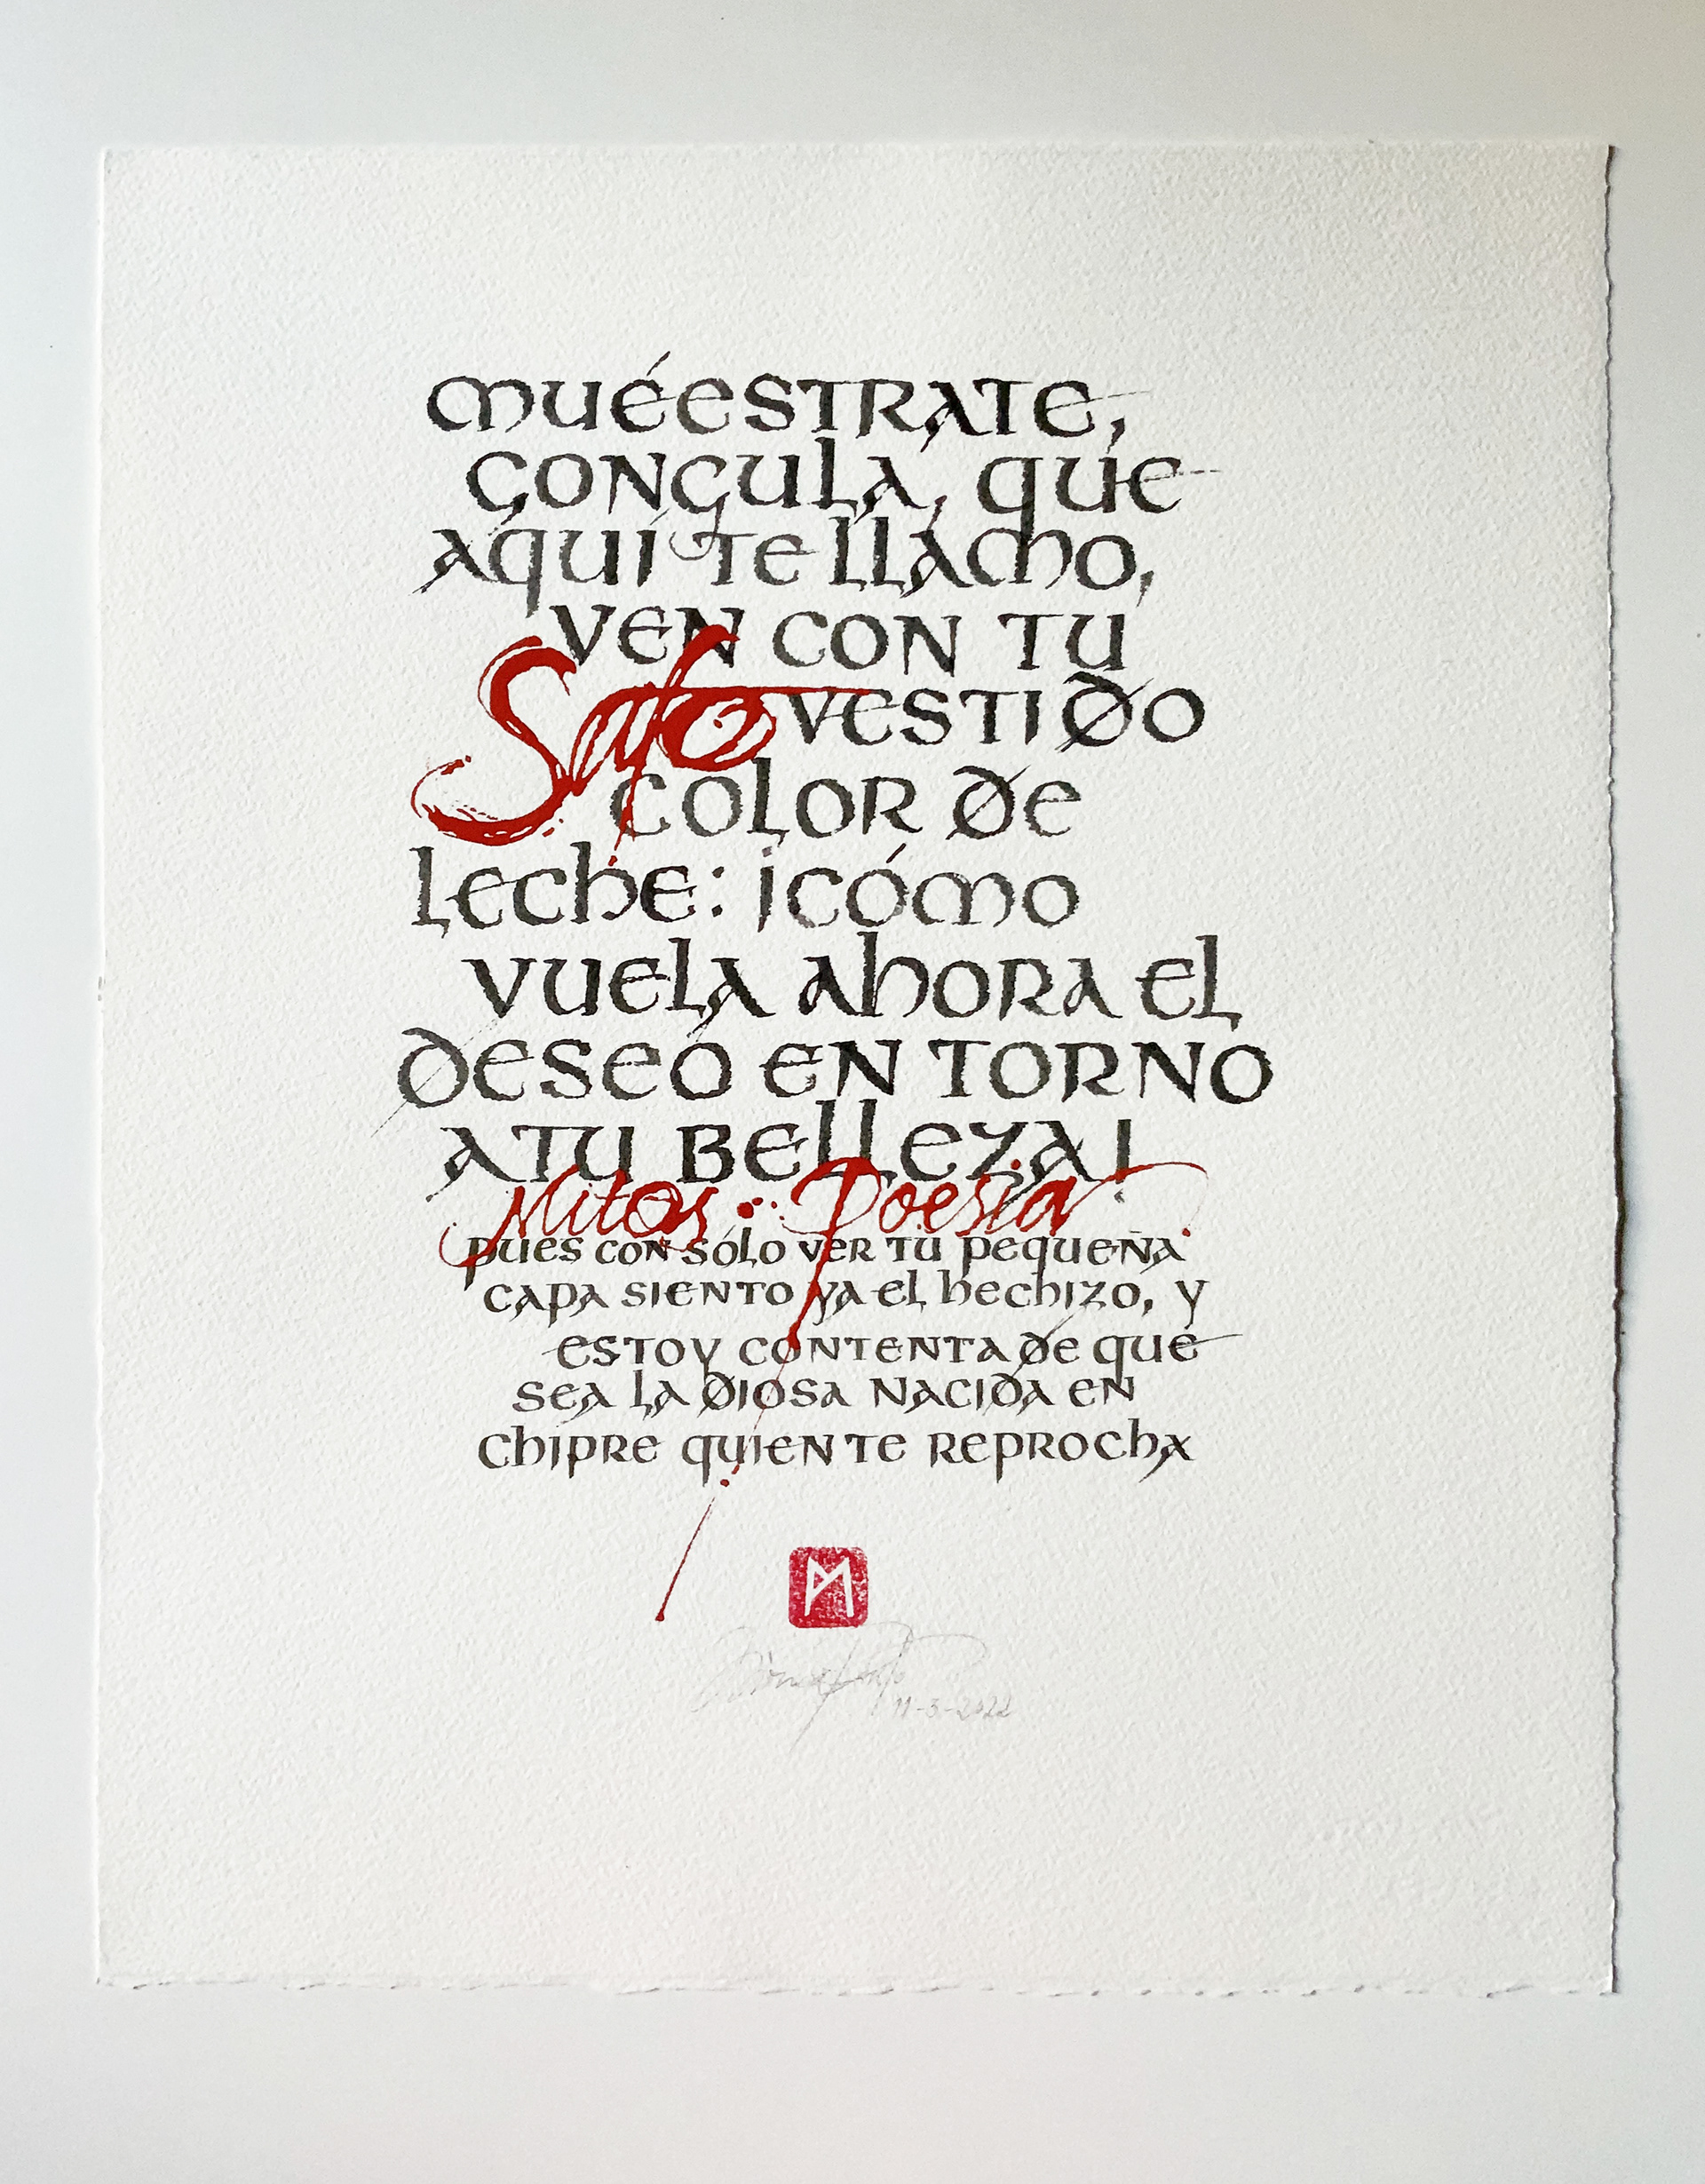 MUÉESTRATE,
GONGULA, QUE
AQUÍ TE LLAMO,
VEN CON TU
Safo
VESTIDO
COLOR DE
LECHE: ¡CÓMO
VUELA AHORA EL
DESEO EN TORNO
A TU BELLEZA!
Mitos: Poesía
PUES CON SÓLO VER TU PEQUEÑA
CAPA SIENTO YA EL HECHIZO, Y
ESTOY CONTENTA DE QUE
SEA LA DIOSA NACIDA EN
CHIPRE QUIEN TE REPROCHA
M
11-3-2022